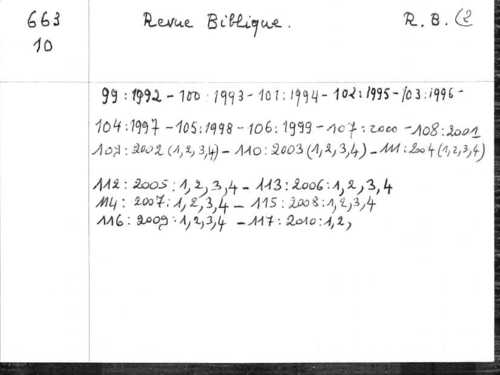 663 Revue Biblique. R.B. (2
10
99:1992 - 100:1993 - 101:1994 - 102:1995 - 103:1996 -
104:1997 - 105:1998 - 106:1999 - 107:2000 - 108:2001
109:2002 (1,2,3,4) - 110:2003 (1,2,3,4) - 111:2004 (1,2,3,4)
112:2005:1,2,3,4 - 113:2006:1,2,3,4
114:2007:1,2,3,4 - 115:2008:1,2,3,4
116:2009:1,2,3,4 - 117:2010:1,2,